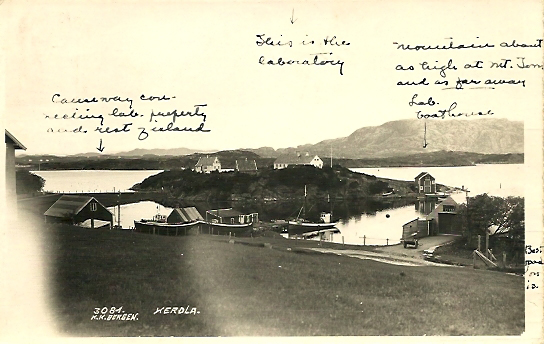 This is the
laboratory
Mountain about
as high as Mt. Tom
and as far away
Lab.
boathouse
Causeway con-
necting lab. property
and rest of island
3084.
K.K. BERGEN.
HERDLA.
is.